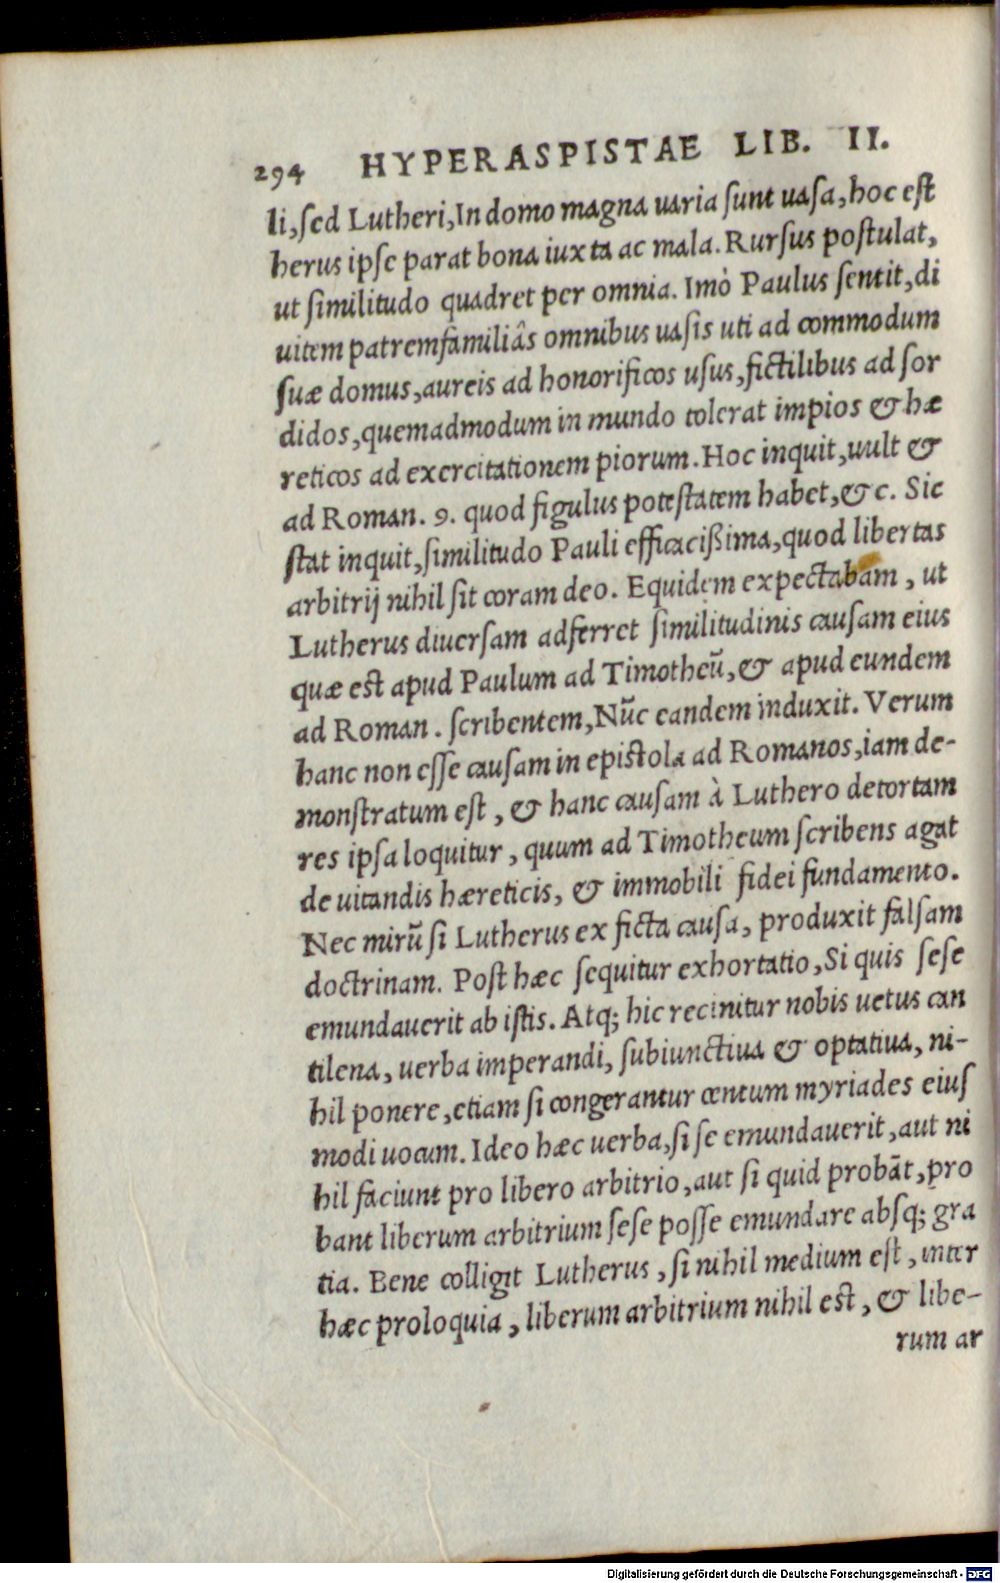 294 HYPERASPISTAE LIB. II.
li, sed Lutheri, In domo magna uaria sunt uasa, hoc est
herus ipse parat bona iuxta ac mala. Rursus postulat,
ut similitudo quadret per omnia. Imò Paulus sentit, di
uitem patremfamiliâs omnibus uasis uti ad commodum
suæ domus, aureis ad honorificos usus, fictilibus ad sor
didos, quemadmodum in mundo tolerat impios & hæ
reticos ad exercitationem piorum. Hoc inquit, uult &
ad Roman. 9. quod figulus potestatem habet, &c. Sic
stat inquit, similitudo Pauli efficacißima, quod libertas
arbitrij nihil sit coram deo. Equidem expectabam, ut
Lutherus diuersam adferret similitudinis causam eius
quæ est apud Paulum ad Timotheũ, & apud eundem
ad Roman. scribentem, Nũc eandem induxit. Verum
hanc non esse causam in epistola ad Romanos, iam de-
monstratum est, & hanc causam à Luthero detortam
res ipsa loquitur, quum ad Timotheum scribens agat
de uitandis hæreticis, & immobili fidei fundamento.
Nec mirũ si Lutherus ex ficta causa, produxit falsam
doctrinam. Post hæc sequitur exhortatio, Si quis sese
emundauerit ab istis. Atq; hic recinitur nobis uetus can
tilena, uerba imperandi, subiunctiua & optatiua, ni-
hil ponere, etiam si congerantur centum myriades eius
modi uocum. Ideo hæc uerba, si se emundauerit, aut ni
hil faciunt pro libero arbitrio, aut si quid probãt, pro
bant liberum arbitrium sese posse emundare absq; gra
tia. Bene colligit Lutherus, si nihil medium est, inter
hæc proloquia, liberum arbitrium nihil est, & libe-
rum ar
Digitalisierung gefördert durch die Deutsche Forschungsgemeinschaft - DFG